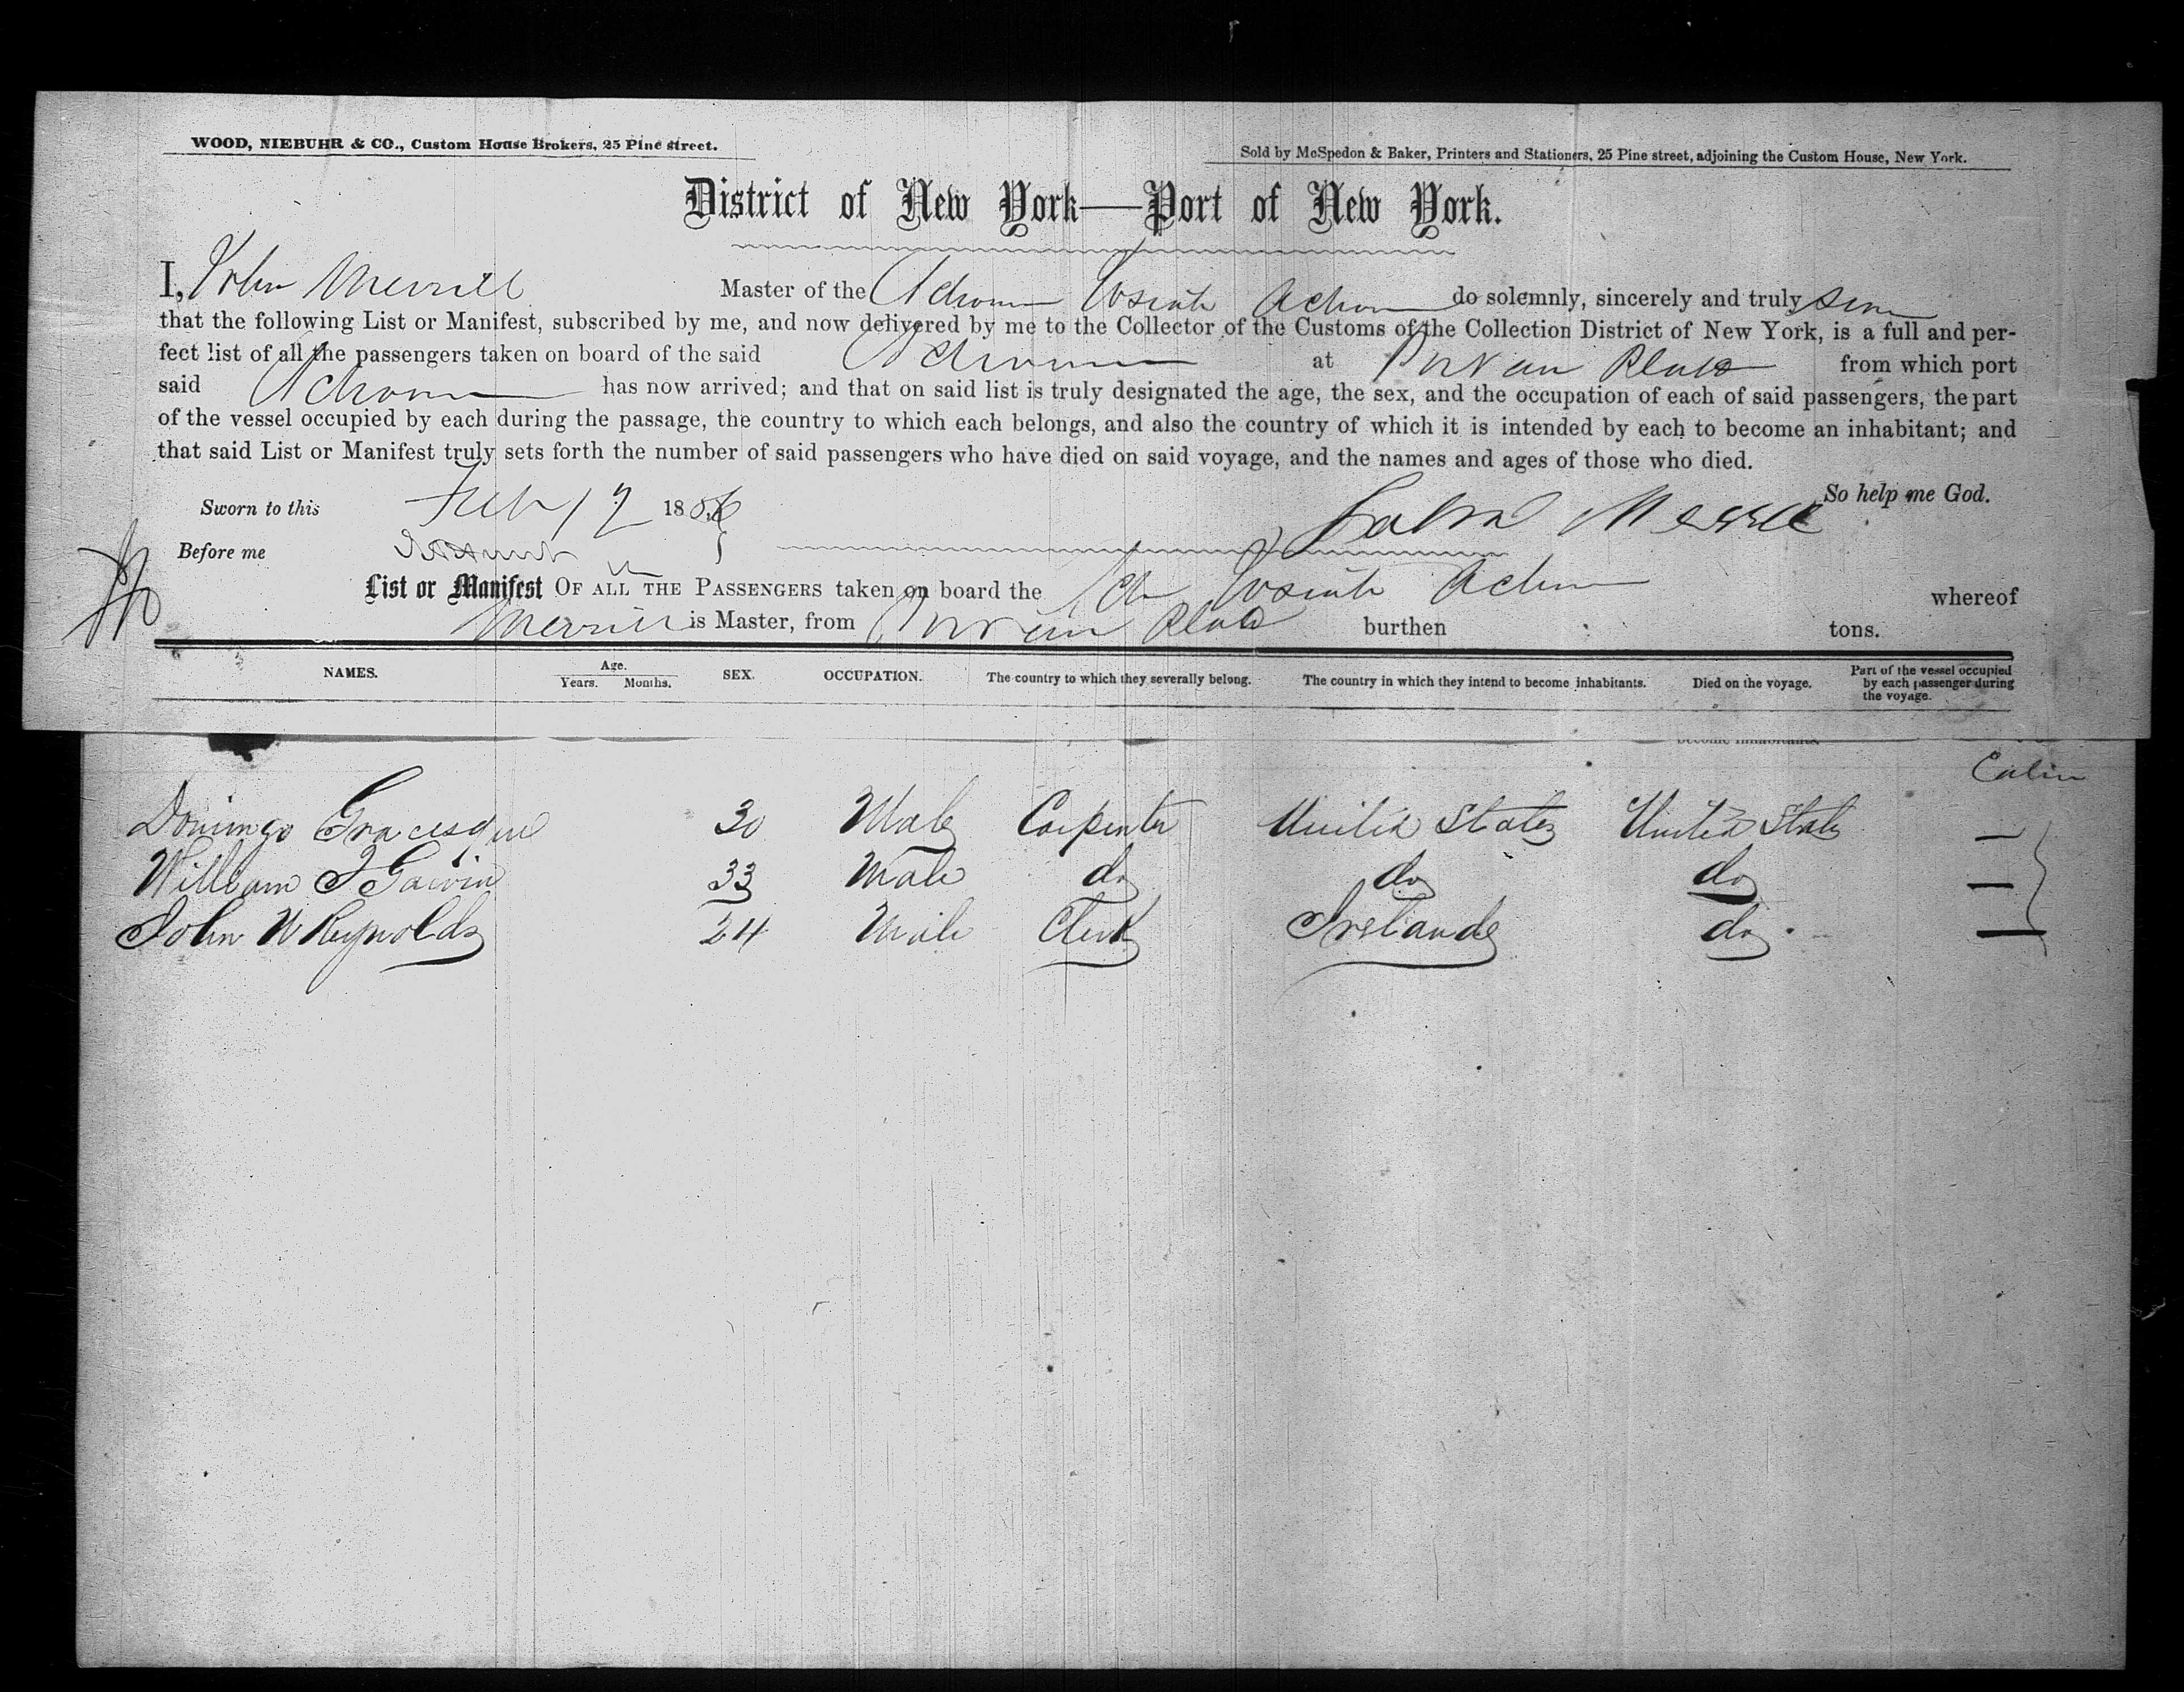 WOOD, NIEBUHR & CO., Custom House Brokers, 25 Pine street.
Sold by McSpedon & Baker, Printers and Stationers, 25 Pine street, adjoining the Custom House, New York.
District of New York—Port of New York.
I, John Merrill Master of the Schooner Josiah Achom do solemnly, sincerely and truly swear
that the following List or Manifest, subscribed by me, and now delivered by me to the Collector of the Customs of the Collection District of New York, is a full and per-
fect list of all the passengers taken on board of the said Schooner at from which port
said Schooner has now arrived; and that on said list is truly designated the age, the sex, and the occupation of each of said passengers, the part
of the vessel occupied by each during the passage, the country to which each belongs, and also the country of which it is intended by each to become an inhabitant; and
that said List or Manifest truly sets forth the number of said passengers who have died on said voyage, and the names and ages of those who died.
So help me God.
Sworn to this Feby 1856 John Merrill
Before me
List or Manifest OF ALL THE PASSENGERS taken on board the Sch Josiah Achom whereof
Merrill is Master, from burthen tons.
NAMES. Age. Years. Months. SEX. OCCUPATION. The country to which they severally belong. The country in which they intend to become inhabitants. Died on the voyage. Part of the vessel occupied by each passenger during the voyage.
become inhabitants.
Cabin
Domingo 30 Male Carpenter United States United States —
William J Gavin 33 Male do do do —
John W Reynolds 24 Male Clerk Ireland do —